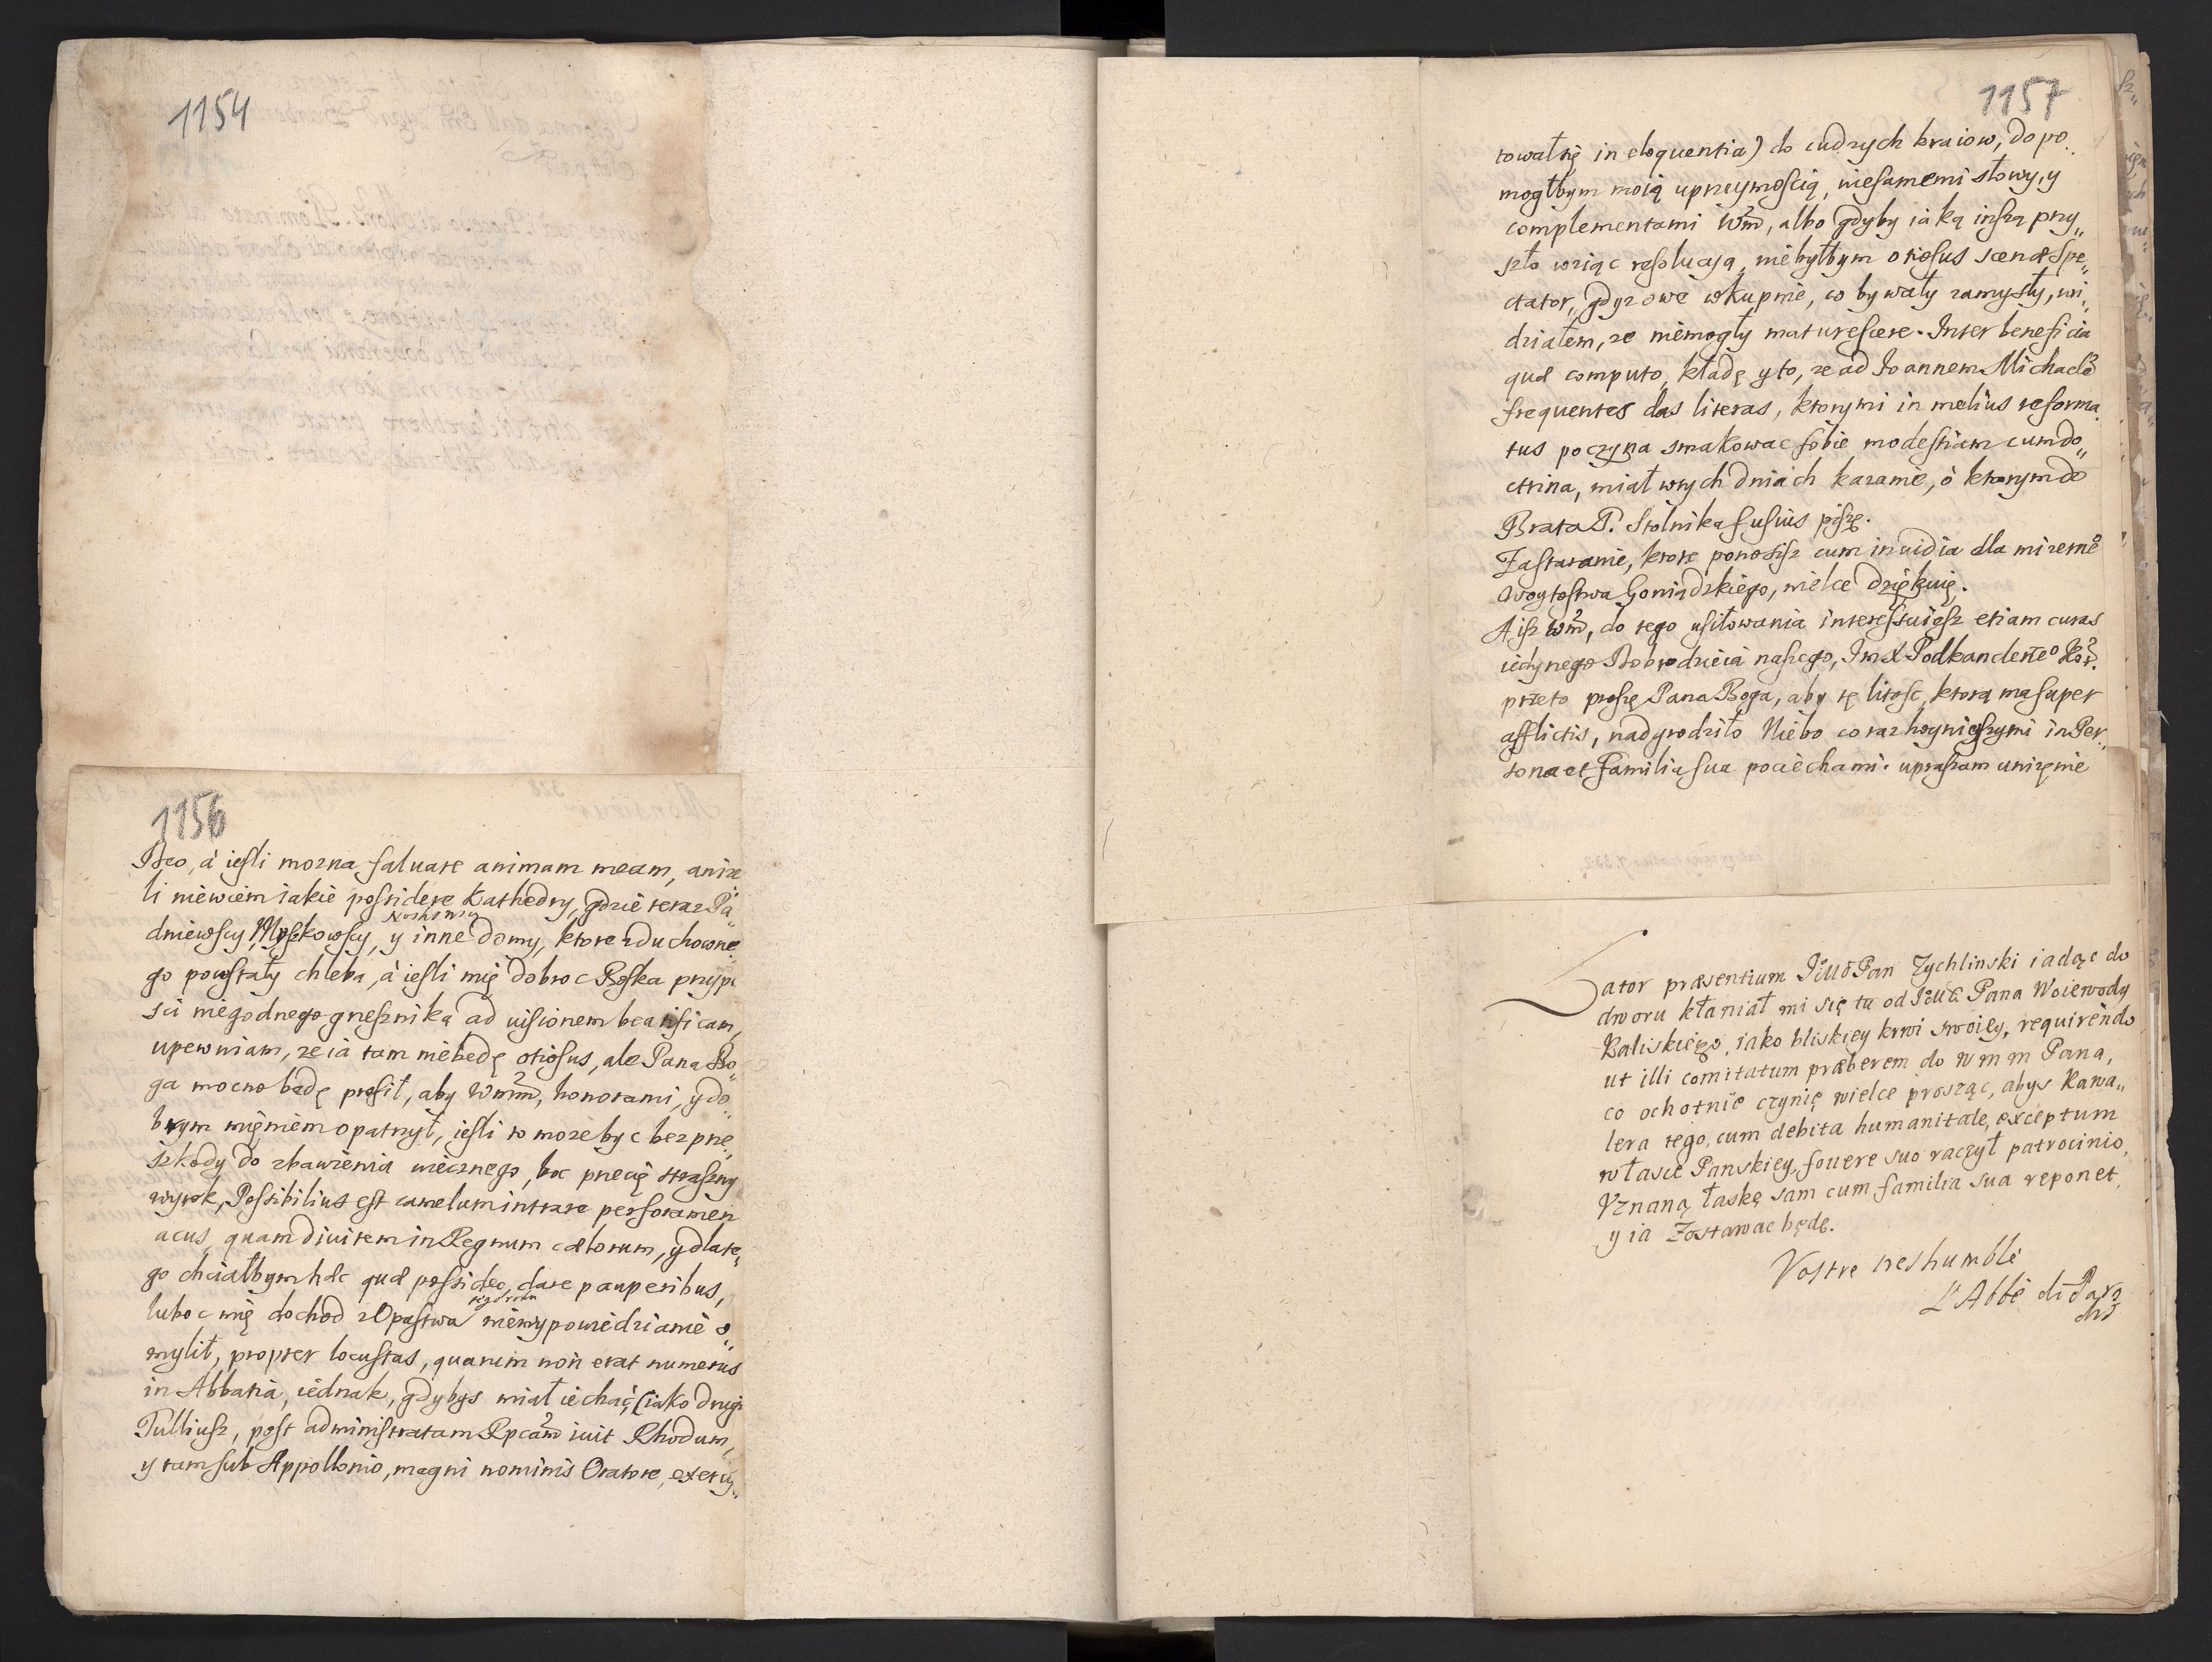 1154
1156
Deo, à iesli mozna saluare animam meam, aniże
li niewiem iakie possidere Kathedry, gdzie teraz Pa„
Noskowscy
dniewscy, Myszkowscy, y inne domy, ktore z duchowne
go powstały chleba, à iesli mię dobroc Boska przypu
sci niegodnego grzesznika ad uisionem beatificam,
upewniam, ze ia tam niebedę otiosus, ale Pana Bo„
ga mocno bedę prosił, aby Wmm, honorami, y do„
brym mięniem opatrzył, iesli to moze byc bez prze„
szkody do zbawienia wiecznego, boc przecię straszny
wyrok, Possibilius est camelum intrare per foramen
acus, quam diuitem in Regnum cælorum, y dlate„
go chciałbym hæc quæ possideo, dare pauperibus,
luboc mię dochod z Opastwa niewypowiedzianie o„
mylił, propter locustas, quarum non erat numerus
in Abbatia, iednak, gdybys miał iechac, (iako drugi
Tulliusz, post administratam Rpcam iuit Rhodum,
y tam sub Appollonio, magni nominis Oratore, exercy„
1157
tował się in eloquentia) do cudzych kraiow, dopo„
mogłbym moią uprzeymoscią, niesamemi słowy, y
complementami Wm, albo gdyby iaką inszą przy„
szło wziąc resolucyą, niebyłbym otiosus scenæ Spe„
ctator, gdyz owe wkupnie, co bywały zamysły, wi„
działem, ze niemogły maturescere. Inter beneficia
quæ computo, kładę y to, ze ad Joannem Michaele
frequentes das literas, ktorymi in melius reforma„
tus poczyna smakowac sobie modestiam cum do„
ctrina, miał w tych dniach kazanie, o ktorym do
Brata P. Stolnika fusius piszę.
Za staranie, ktore ponosisz cum inuidia dla mizerne
Woytostwa Goniądzkiego, wielce dziękuię.
A isz Wm, do tego usiłowania interessuiesz etiam curas
iedynego Dobrodzieia naszego, Jm X Podkanclerze° Kor.
przeto proszę Pana Boga, aby tę litosc, ktorą ma super
afflictis, nadgrodziło Niebo coraz hoynieyszymi in Per„
sona et Familia sua pociechami. upraszam uniżenie
Lator præsentium Jmo Pan Zychlinski iadąc do
dworu kłaniał mi się tu od Jmci Pana Woiewody
Kaliskiego, iako bliskiey krwi swoiey, requirendo
ut illi comitatum præberem do W m m Pana,
co ochotnie czynię wielce prosząc, abys Kawa„
lera tego, cum debita humanitate, exceptum
w łasce Panskiey, fouere suo raczył patrocinio,
Vznaną łaskę sam cum familia sua reponet,
y ia Zostawac będę.
Vostre treshumble
L'Abbé di Para